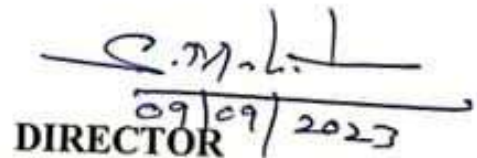 09/09/2023
DIRECTOR